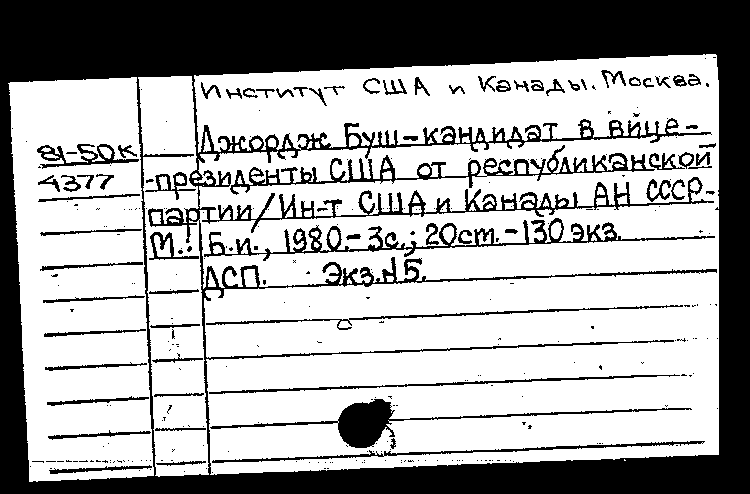 Институт США и Канады. Москва.
81-50к
4377
Джордж Буш-кандидат в вице-
-президенты США от республиканской
партии/Ин-т США и Канады АН СССР.-
М.: Б.и., 1980.- 3с.; 20см.-130 экз.
ДСП. Экз.№5.